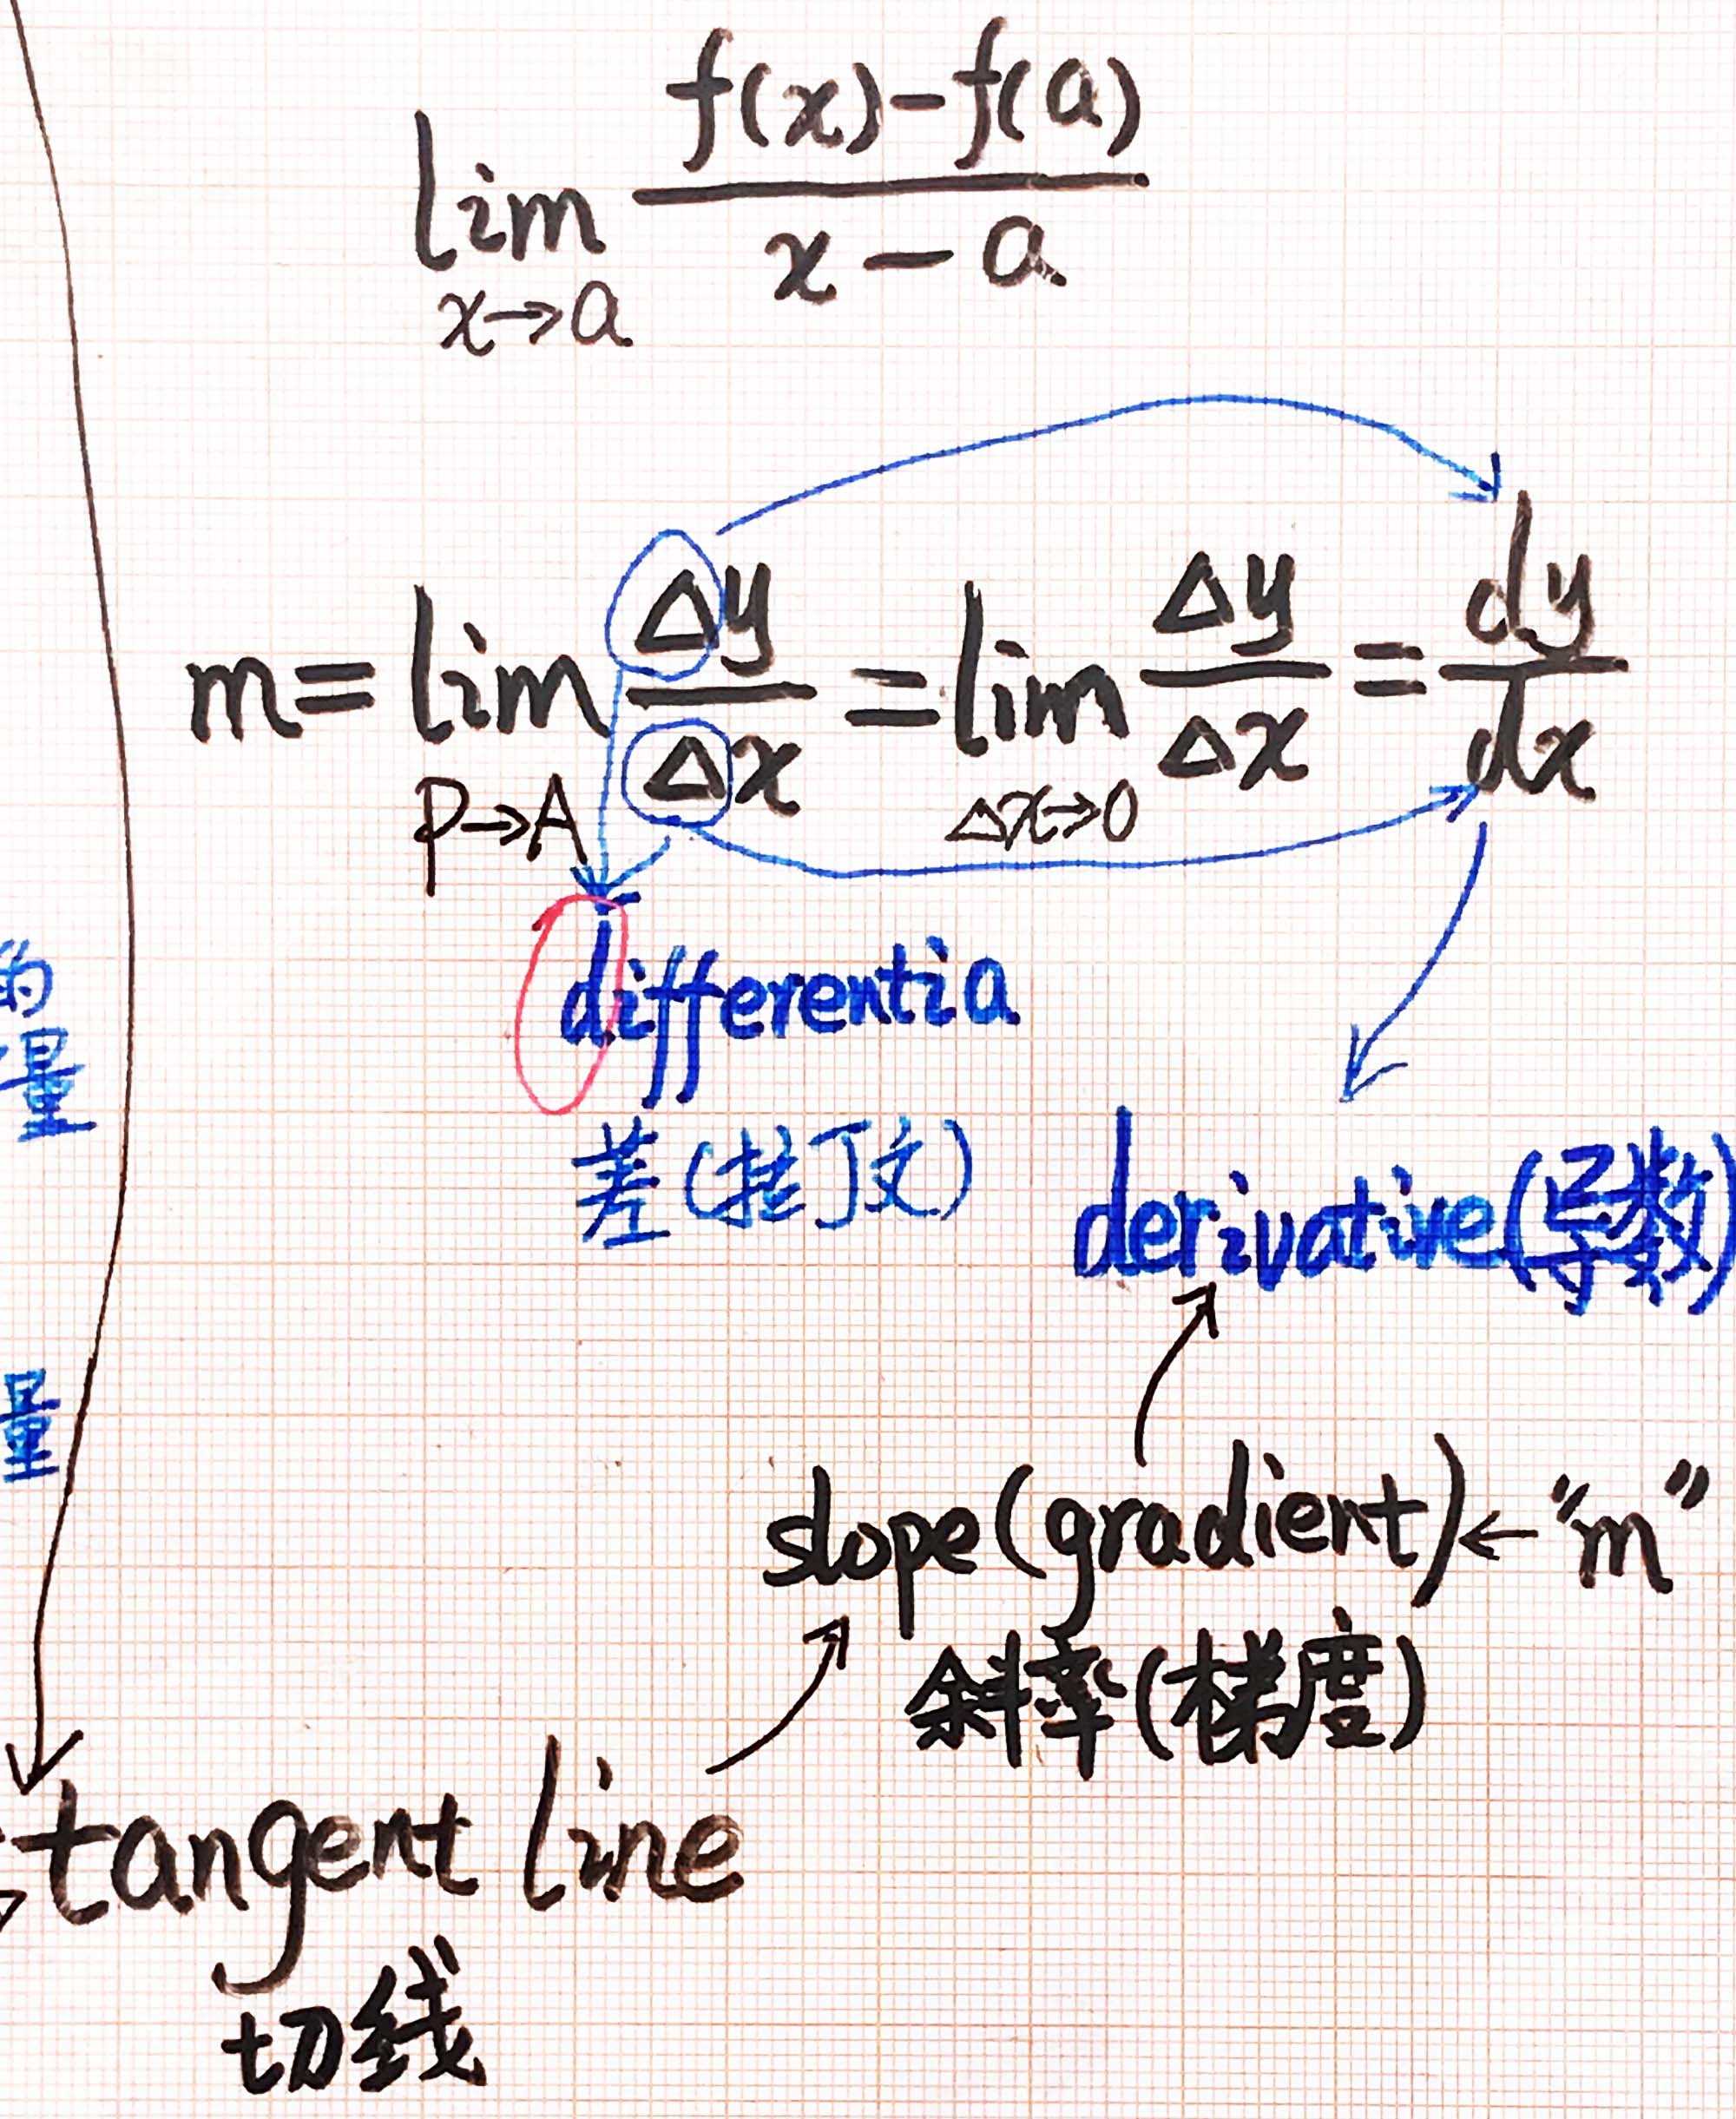 lim f(x)-f(a)
x→a x-a
m=lim Δy/Δx=lim Δy/Δx=dy/dx
P→A Δx→0
differentia
的
量
差(拉丁文)
derivative(导数)
量
slope(gradient)←"m"
斜率(梯度)
tangent line
切线